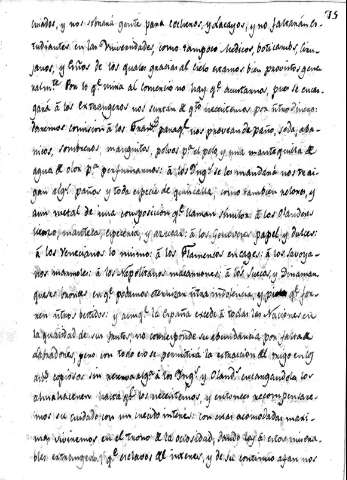 75
criados, y nos sobrará gente para cocheros, y Lacayos, y no faltarán Es-
tudiantes en las Universidades, como tampoco Medicos, boticarios, Ciru-
janos, y de los quales gracias al cielo estamos bien provistos gene-
ralmte. Por lo qe mira al comercio no hay qe asustarnos, pues se encar-
gará á los extrangeros nos surtan de qto necesitemos, por ntro dinero:
daremos comision á los paraqe nos provean de paño, seda, aba-
nicos, sombreros, manguitos, polvos pa el pelo, y una mantequilla de
agua de olor pa perfumarnos: á los Ings se les mandará nos trai-
gan algs paños y toda especie de quincalla, como tambien relojes, y
aun metal de una composicion qe llaman similor: á los Olandeses
lienzo, manteca, especeria, y azucar: á los Genoveses papel, y dulces:
á los Venecianos lo mismo: á los Flamencos encages: á los Savoya-
nos marmoles: á los Napolitanos macarrones: á los Suecos, y Dinamar-
queses bronces en qe podamos eternizar ntra indolencia, y qe for-
men ntros bustos: y aunqe la España excede á todas las Naciones en
la qualidad de sus frutos, no corresponde su abundancia por falta de
labradores, pero con todo eso se permitirá la extraccion de trigo en los
años copiosos sin reserva algna á los Ings y Olands encargandoles los
almahacenen hasta qe los necesitemos, y entonces recompensare-
mos su cuidado con un crecido interes: con estas acomodadas maxi-
mas viviremos en el trono de la ociosidad, dando leyes á estos misera-
bles extrangeros, qe esclavos del interes, y de su continuo afan nos